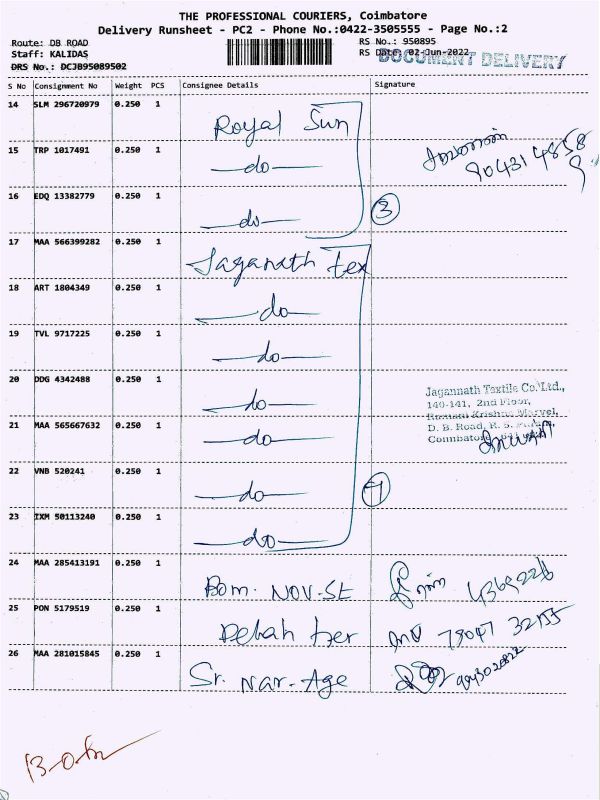 THE PROFESSIONAL COURIERS, Coimbatore
Delivery Runsheet - PC2 - Phone No.:0422-3505555 - Page No.:2
Route: DB ROAD RS No.: 950895
Staff: KALIDAS RS Date: 02-Jun-2022
DOCUMENT DELIVERY
DRS No.: DCJB95089502
S No Consignment No Weight PCS Consignee Details Signature
14 SLM 296720979 0.250 1 Royal Sun
15 TRP 1017491 0.250 1 -do-
16 EDQ 13382779 0.250 1 -do- 3
17 MAA 566399282 0.250 1 Jaganath tex
18 ART 1804349 0.250 1 -do-
19 TVL 9717225 0.250 1 -do-
20 DDG 4342488 0.250 1 -do-
Jagannath Textile Co. Ltd.,
140-141, 2nd Floor,
21 MAA 565667632 0.250 1 -do-
D. B. Road, R. S.
Coimbatore
22 VNB 520241 0.250 1 -do- 7
23 IXM 50113240 0.250 1 -do-
24 MAA 285413191 0.250 1 Bom. NOV-St
25 PON 5179519 0.250 1
26 MAA 281015845 0.250 1 Sr. Nar-Age